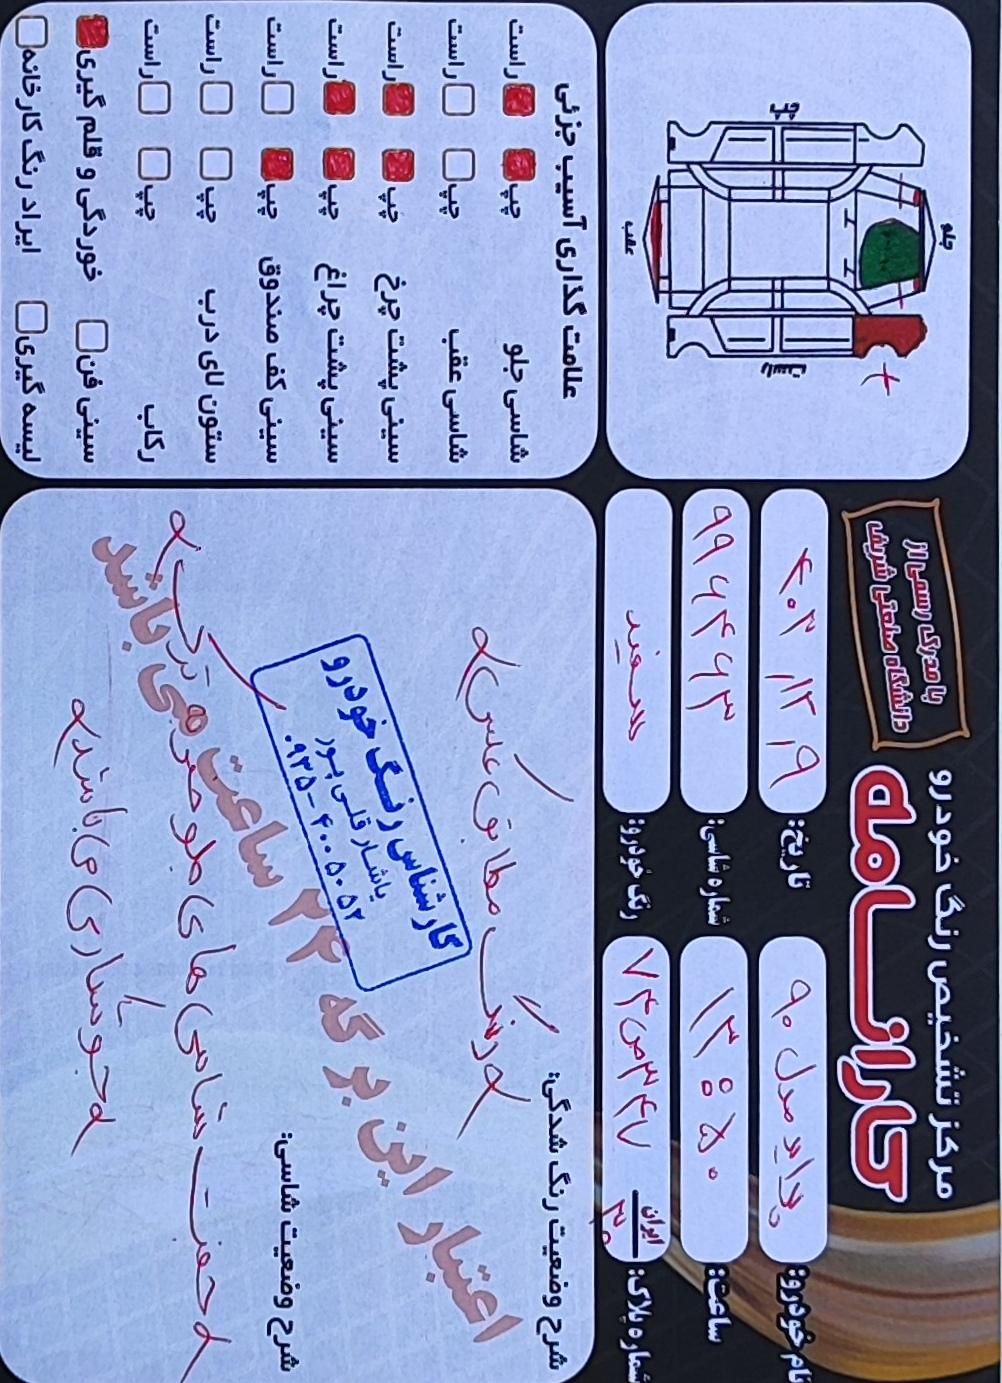 مرکز تشخیص رنگ خودرو
کارانـامه
با مدرک رسمی از
دانشگاه صنعتی شریف
نام خودرو: پراید مدل ۹۰
تاریخ: ۴۰۳/۱۲/۱۹
ساعت: ۱۳:۵۰
شماره شاسی: ۹۹۶۴۶۳
شماره پلاک: ۷۴ص۳۴۷ ایران ۳۰
رنگ خودرو: سفید
چپ
جلو
عقب
راست
علامت گذاری آسیب جزئی
شاسی جلو چپ راست
شاسی عقب چپ راست
سینی پشت چرخ چپ راست
سینی پشت چراغ چپ راست
سینی کف صندوق چپ راست
ستون لای درب چپ راست
رکاب چپ راست
سینی فن خوردگی و قلم گیری
لیسه گیری ایراد رنگ کارخانه
شرح وضعیت رنگ شدگی:
مطابق عکس
کارشناس رنگ خودرو
یاشار قلی پور
۰۹۳۵-۴۰۰۵۰۵۲
اعتبار این برگه ۲۴ ساعت می باشد
شرح وضعیت شاسی:
جفت شاسی های جلو ضربه
می باشد